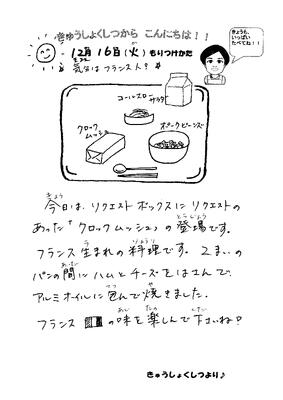 きゅうしょくしつから こんにちは！！
きょうも、
いっぱい
たべてね！！
12月 16日(火) もりつけかた
気分は フランス人？
コールスロー
サラダ
クロック
ムッシュ
ポークビーンズ
今日は、リクエスト ボックスに リクエストの
あった「クロックムッシュ」の 登場です。
フランス 生まれの 料理です。 2まいの
パンの 間に ハムと チーズを はさんで、
アルミホイルに 包んで 焼きました。
フランス の味を 楽しんで 下さいね？
きゅうしょくしつより♪